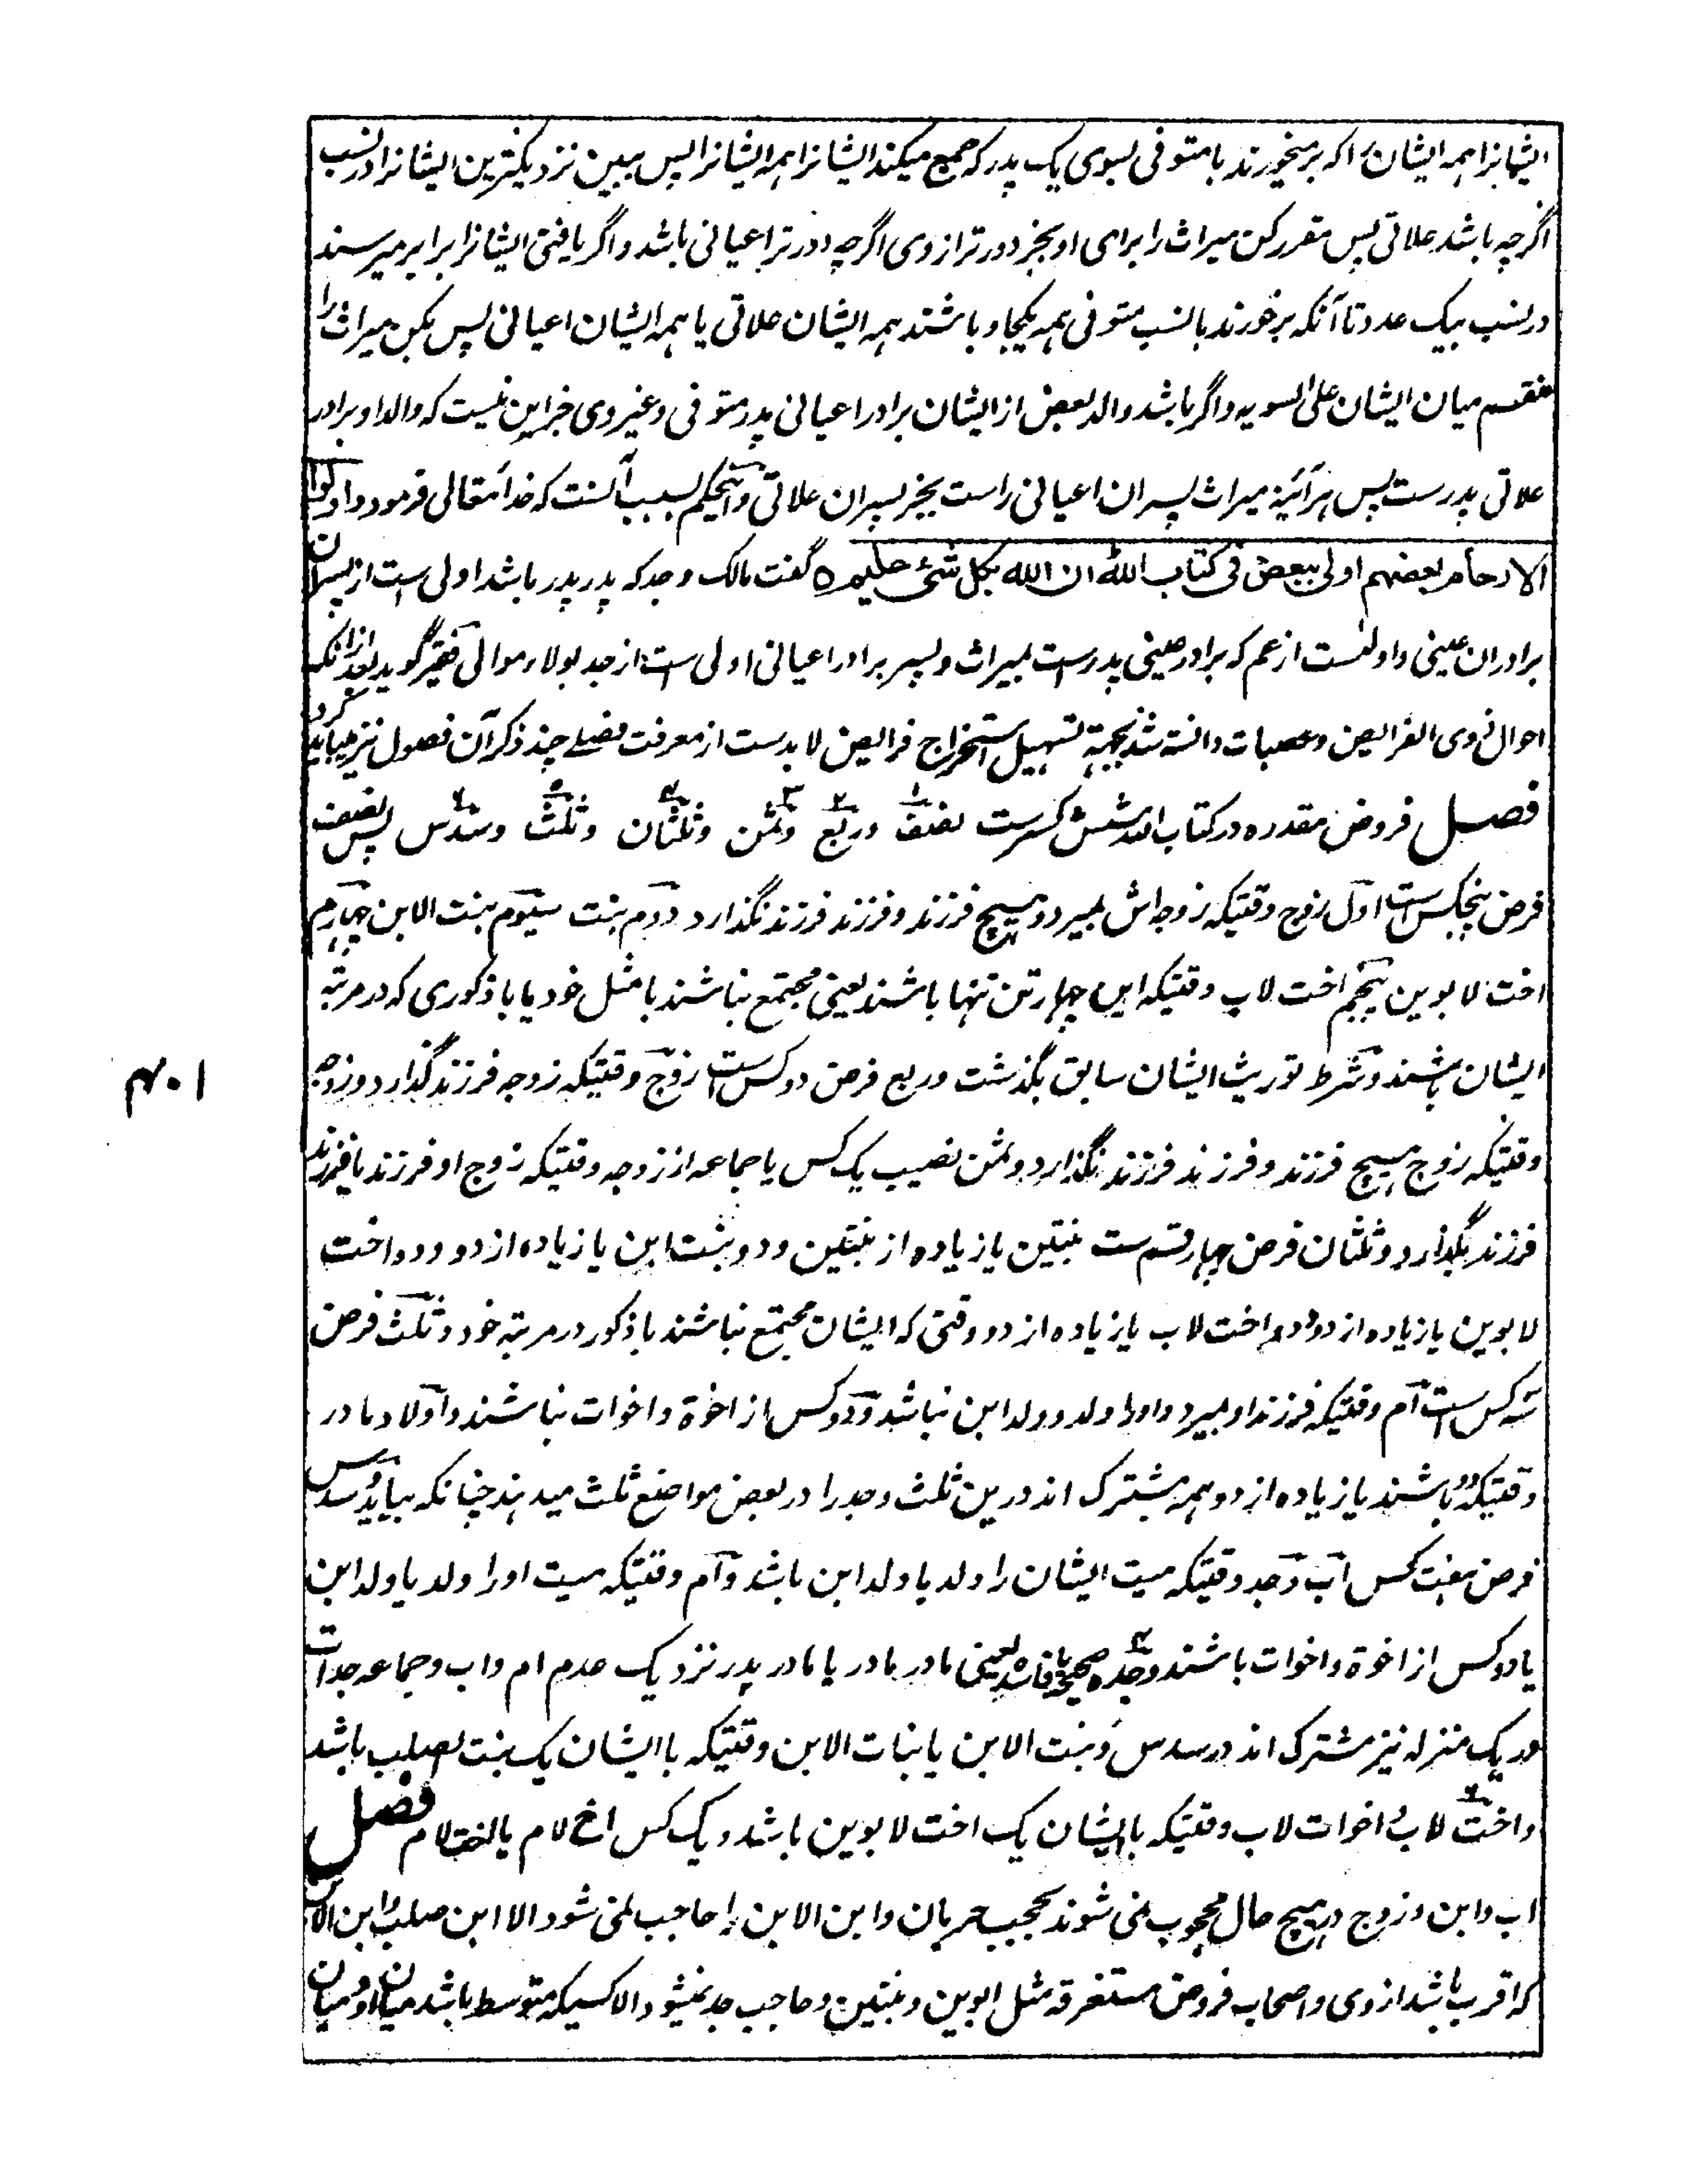 ایشانرا همه ایشان را که برمیخورند با متوفی بسوی یک پدر که جمع میکند ایشانرا همه ایشانرا پس ببین نزدیکترین ایشانرا در نسب
اگرچه باشد علاتی پس مقرر کن میراث را برای او بجز دورتر از وی اگرچه دورتر اعیانی باشد و اگر یافتی ایشانرا برابر میرسند
در نسب بیک عدد تا آنکه برخورند با نسب متوفی همه یکجا و باشند همه ایشان علاتی یا همه ایشان اعیانی پس بکن میراث را
منقسم میان ایشان علی السویه و اگر باشد والد بعض از ایشان برادر اعیانی پدر متوفی و غیر وی جز این نیست که والد او برادر
علاتی پدرست پس هرآئینه میراث پسران اعیانی راست بجز پسران علاتی و اینحکم بسبب آنست که خدا تعالی فرمود و اولوا
الارحام بعضهم اولی ببعض فی کتاب الله ان الله بکل شیء علیم ه گفت مالک و جد که پدر پدر باشد اولی ست از پسران
برادران عینی و اولیست از عم که برادر عینی پدرست بمیراث و پسر برادر اعیانی اولی ست از جد بولاء موالی فقیر گوید بعد ازانکه
احوال ذوی الفرایض و عصبات دانسته شد بجهة تسهیل استخراج فرایض لابدست از معرفت فصلے چند ذکر آن فصول نیز میباید کرد
فصل فروض مقدره در کتاب الله شش کسرست نصف و ربع و ثمن و ثلثان و ثلث و سدس پس نصف
فرض پنجکس ست اول زوج وقتیکه زوجه‌اش بمیرد و هیچ فرزند و فرزند فرزند نگذارد دوم بنت سیوم بنت الابن چهارم
اخت لابوین پنجم اخت لاب وقتیکه این چهار تن تنها باشند یعنی مجتمع نباشند با مثل خود یا با ذکوری که در مرتبه
ایشان باشند و شرط توریث ایشان سابق بگذشت و ربع فرض دو کس ست زوج وقتیکه زوجه فرزند گذارد و زوجه
وقتیکه زوج هیچ فرزند و فرزند فرزند نگذارد و ثمن نصیب یک کس یا جماعه از زوجه وقتیکه زوج او فرزند یا فرزند
فرزند بگذارد و ثلثان فرض چهار قسم ست بنتین یا زیاده از بنتین و دو بنت ابن یا زیاده از دو و دو اخت
لابوین یا زیاده از دو و دو اخت لاب یا زیاده از دو وقتی که ایشان مجتمع نباشند با ذکور در مرتبه خود و ثلث فرض
سه کس ست ام وقتیکه فرزند او بمیرد و او را ولد و ولد ابن نباشد و دو کس از اخوة و اخوات نباشند و اولاد مادر
وقتیکه دو باشند یا زیاده از دو همه مشترک اند درین ثلث و جد را در بعض مواضع ثلث میدهند چنانکه بیاید و سدس
فرض هفت کس اب و جد وقتیکه میت ایشان را ولد یا ولد ابن باشد و ام وقتیکه میت او را ولد یا ولد ابن
یا دو کس از اخوة و اخوات باشند و جده صحیحه یا فاسده یعنی مادر مادر یا مادر پدر نزدیک عدم ام و اب و جماعه جدات
در یک منزله نیز مشترک اند در سدس و بنت الابن یا بنات الابن وقتیکه با ایشان یک بنت لصلب باشد
و اخت لاب و اخوات لاب وقتیکه با ایشان یک اخت لابوین باشد و یک کس اخ لام یا اخت لام فصل
اب و ابن و زوج در هیچ حال محجوب نمی شوند بحجب حرمان و ابن الابن را حاجب نمی شود الا ابن صلب و ابن الابن
که اقرب باشد از وی و اصحاب فروض مستغرقه مثل ابوین و بنتین و حاجب جد نمیشود الا کسیکه متوسط باشد میان او و میان
۴۰۱